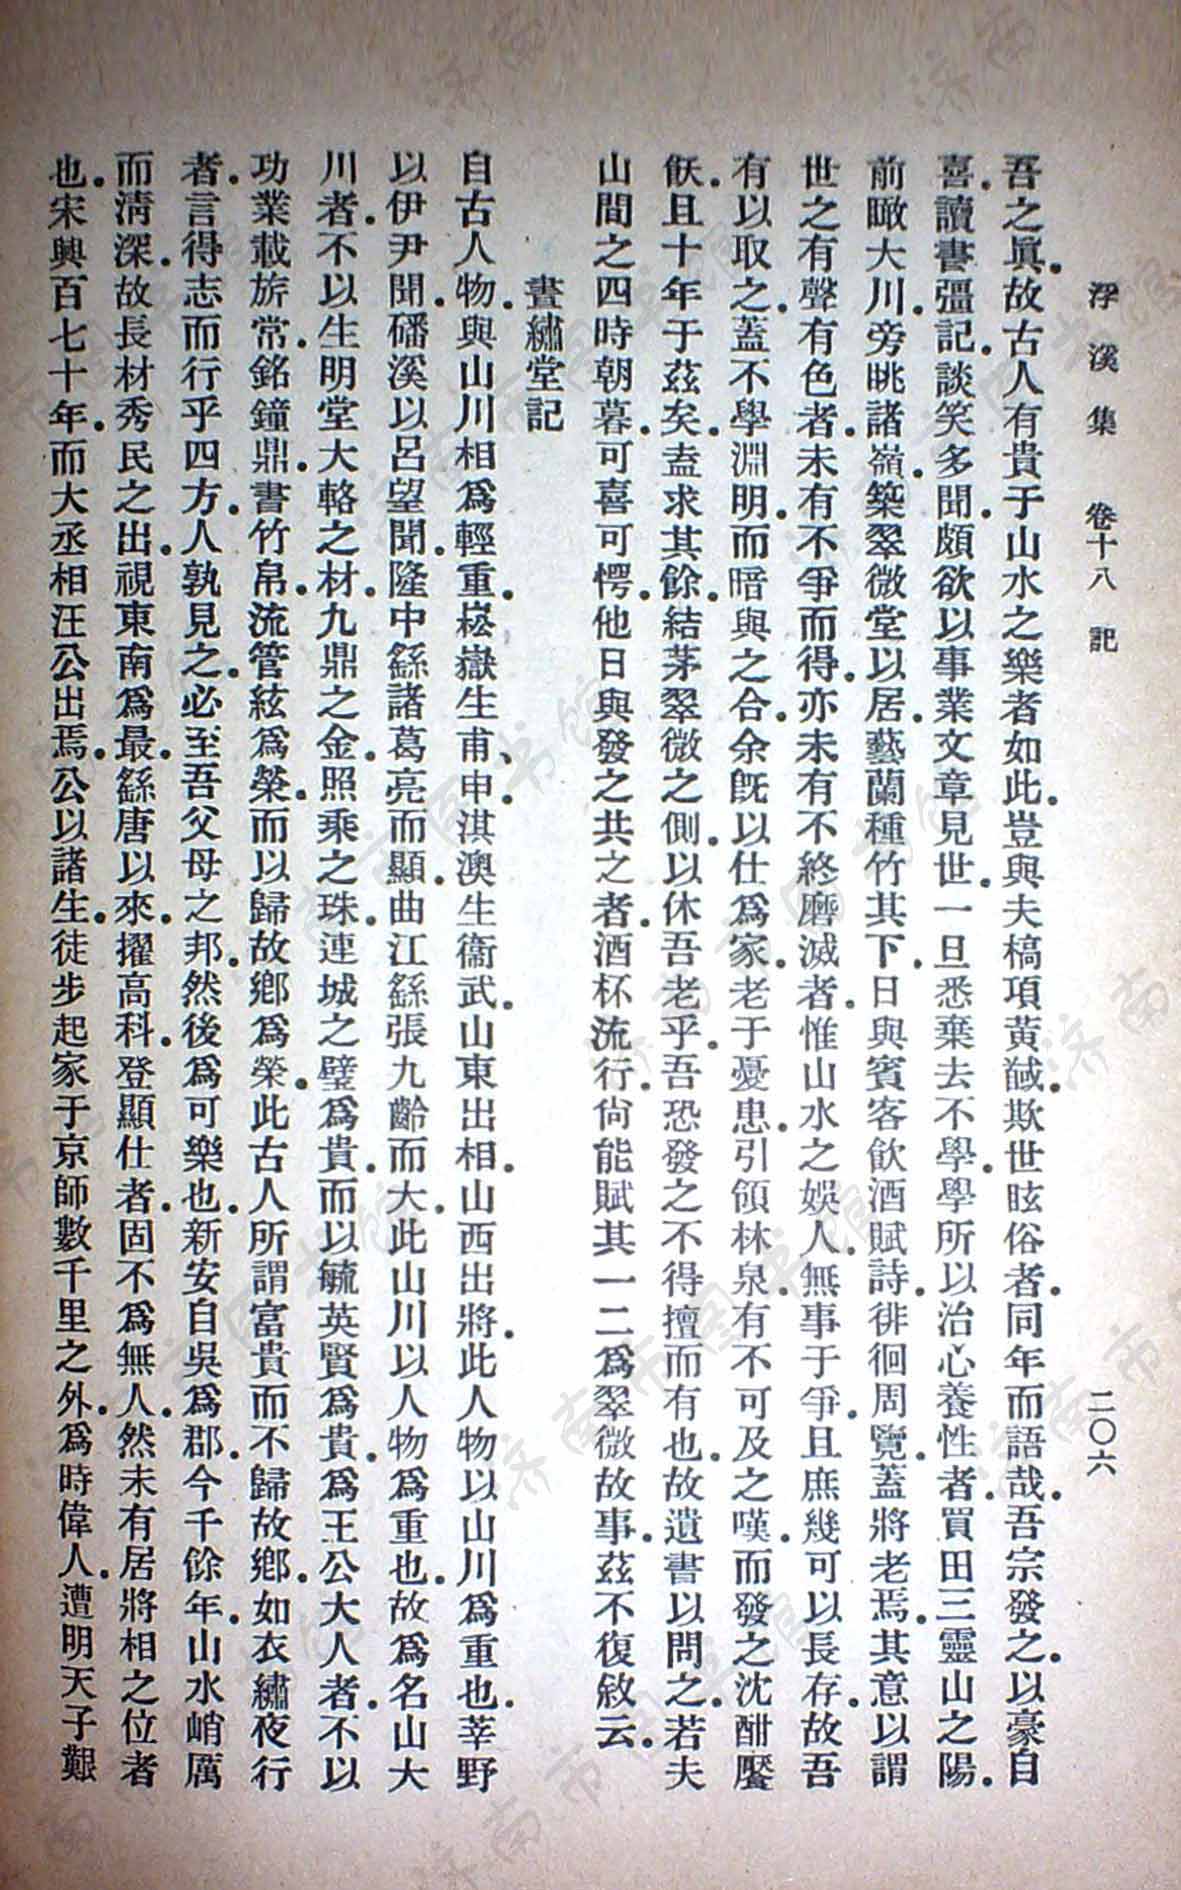 浮溪集　卷十八　記　二〇六
吾之眞。故古人有貴于山水之樂者如此。豈與夫槁項黃馘。欺世眩俗者。同年而語哉。吾宗發之。以豪自
喜。讀書彊記。談笑多聞。頗欲以事業文章見世。一旦悉棄去不學。學所以治心養性者。買田三靈山之陽。
前瞰大川。旁眺諸嶺。築翠微堂以居。藝蘭種竹其下。日與賓客飲酒賦詩。徘徊周覽。蓋將老焉。其意以謂
世之有聲有色者。未有不爭而得。亦未有不終磨滅者。惟山水之娛人。無事于爭。且庶幾可以長存。故吾
有以取之。蓋不學淵明。而暗與之合。余旣以仕爲家。老于憂患。引領林泉。有不可及之嘆。而發之沈酣饜
飫。且十年于茲矣。盍求其餘。結茅翠微之側。以休吾老乎。吾恐發之不得擅而有也。故遺書以問之。若夫
山間之四時朝暮。可喜可愕。他日與發之共之者。酒杯流行。尙能賦其一二爲翠微故事。茲不復敘云。
晝繡堂記
自古人物。與山川相爲輕重。崧嶽生甫、申。淇澳生衞武。山東出相。山西出將。此人物以山川爲重也。莘野
以伊尹聞。磻溪以呂望聞。隆中繇諸葛亮而顯。曲江繇張九齡而大。此山川以人物爲重也。故爲名山大
川者。不以生明堂大輅之材。九鼎之金。照乘之珠。連城之璧爲貴。而以毓英賢爲貴。爲王公大人者。不以
功業載旂常。銘鐘鼎。書竹帛。流管絃爲榮。而以歸故鄕爲榮。此古人所謂富貴而不歸故鄕。如衣繡夜行
者。言得志而行乎四方。人孰見之。必至吾父母之邦。然後爲可樂也。新安自吳爲郡。今千餘年。山水峭厲
而淸深。故長材秀民之出。視東南爲最。繇唐以來。擢高科。登顯仕者。固不爲無人。然未有居將相之位者
也。宋興百七十年。而大丞相汪公出焉。公以諸生。徒步起家于京師數千里之外。爲時偉人。遭明天子艱